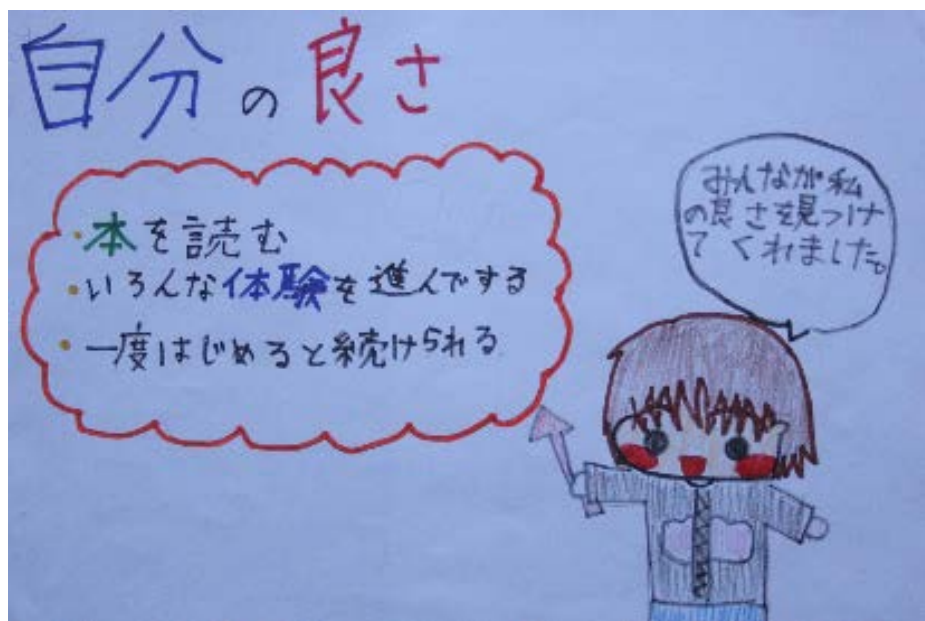 自分の良さ
・本を読む
・いろんな体験を進んでする
・一度はじめると続けられる
みんなが私
の良さを見つけ
てくれました。